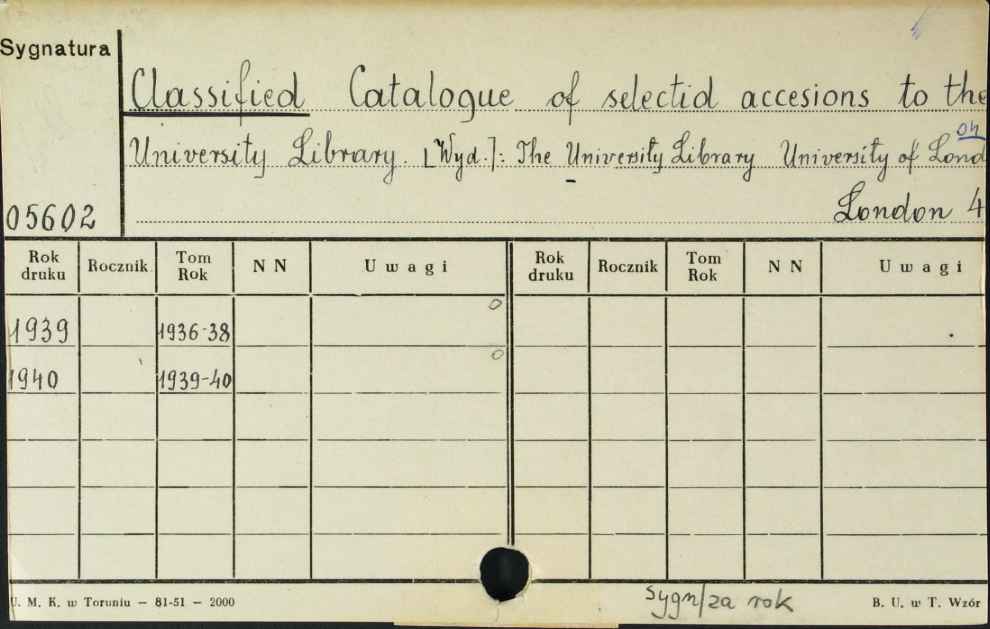 Sygnatura
Classified Catalogue of selectid accesions to the
University Library. [Wyd.]: The University Library University of London
05602
London 4
Rok druku Rocznik Tom Rok N N Uwagi Rok druku Rocznik Tom Rok N N Uwagi
1939 1936-38 0
1940 1939-40 0
U. M. K. w Toruniu — 81-51 — 2000
Sygn/za rok
B. U. w T. Wzór